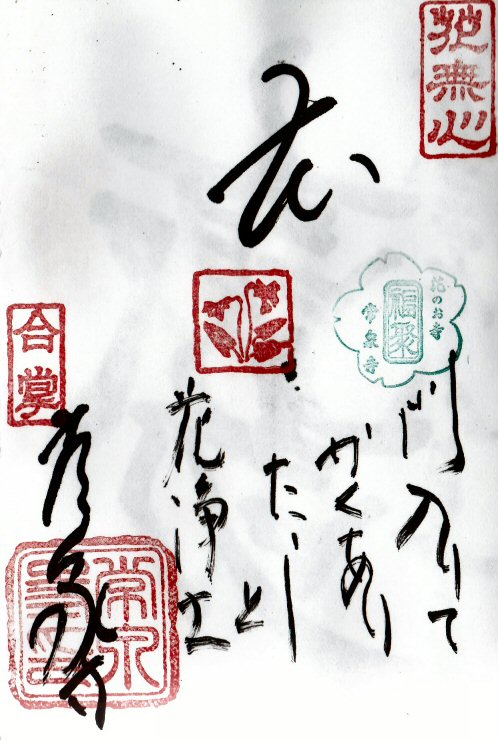 花無心
花のお寺
福聚
常泉寺
門入りて
かくあり
たしと
花浄土
合掌
常泉寺